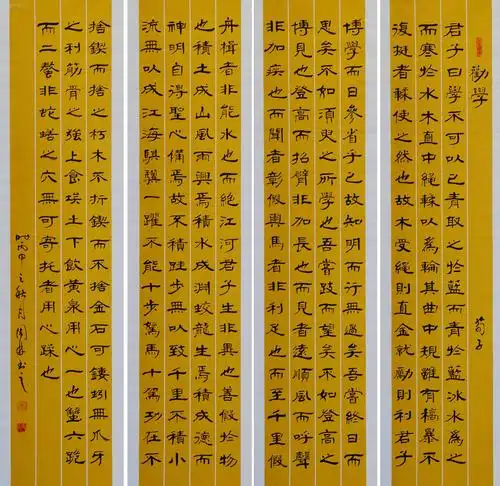 勸學
荀子
君子曰學不可以已青取之於藍而青於藍冰水為之
而寒於水木直中繩輮以為輪其曲中規雖有槁暴不
復挺者輮使之然也故木受繩則直金就勵則利君子
博學而日參省乎己故知明而行無過矣吾嘗終日而
思矣不如須臾之所學也吾嘗跂而望矣不如登高之
博見也登高而招臂非加長也而見者遠順風而呼聲
非加疾也而聞者彰假輿馬者非利足也而至千里假
舟楫者非能水也而絕江河君子生非異也善假於物
也積土成山風雨興焉積水成淵蛟龍生焉積成德而
神明自得聖心備焉故不積跬步無以致千里不積小
流無以成江海騏驥一躍不能十步駑馬十駕功在不
捨鍥而捨之朽木不折鍥而不捨金石可鏤蚓無爪牙
之利筋骨之強上食埃土下飲黃泉用心一也蟹六跪
而二螯非蛇蟮之穴無可寄托者用心躁也
丙申之秋月